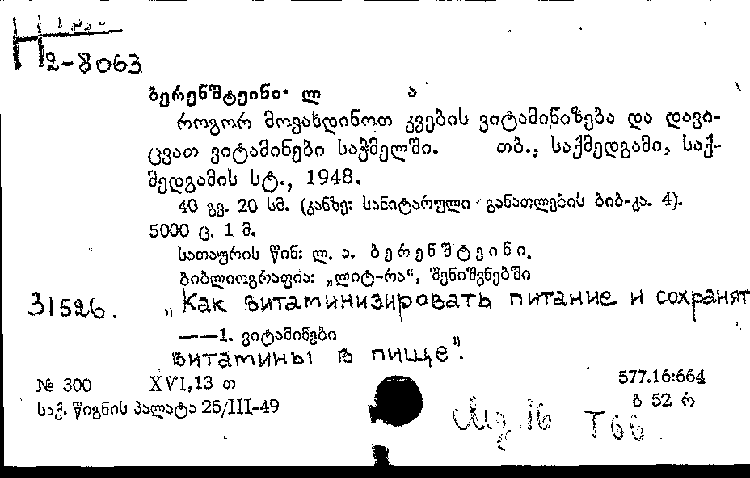 H
2-8063
ბერენშტეინი ლ ა
როგორ მოვახდინოთ კვების ვიტამინიზება და დავი-
ცვათ ვიტამინები საჭმელში. თბ., საქმედგამი, საქ-
მედგამის სტ., 1948.
40 გვ. 20 სმ. (კანზე: სანიტარული განათლების ბიბ-კა. 4).
5000 ც. 1 მ.
სათაურის წინ: ლ. ა. ბერენშტეინი.
ბიბლიოგრაფია: „ლიტ-რა“, შენიშვნებში
31526. „Как витаминизировать питание и сохранят
——1. ვიტამინები
витамины в пище".
№ 300 XVI,13 თ 577.16:664
საქ. წიგნის პალატა 25/III-49 ბ 52 რ
16 T66